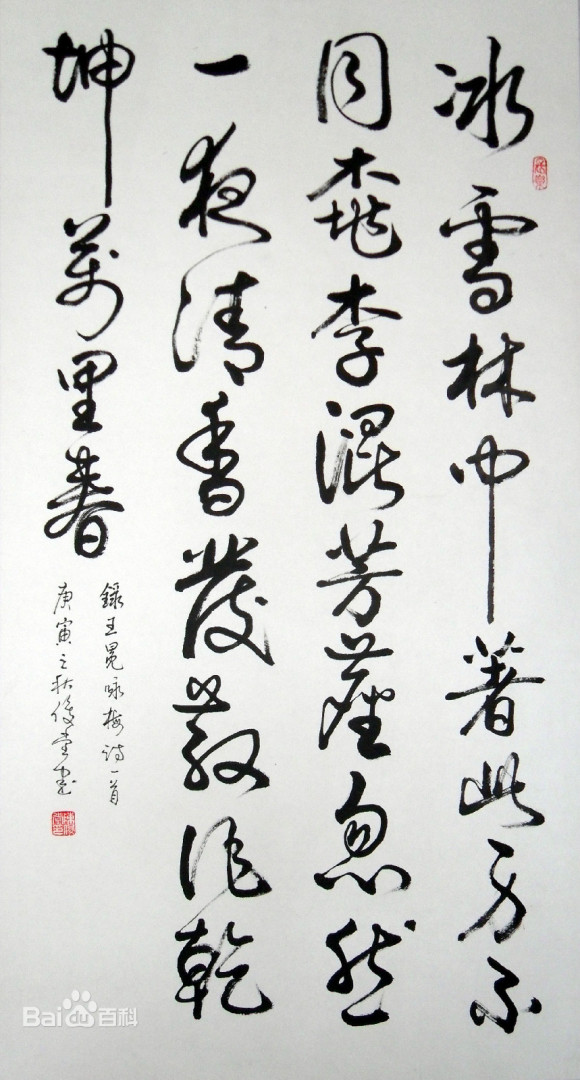 冰雪林中著此身不
同桃李混芳塵忽然
一夜清香發散作乾
坤萬里春
錄王冕咏梅詩一首
庚寅之秋俊堂書
Baidu百科